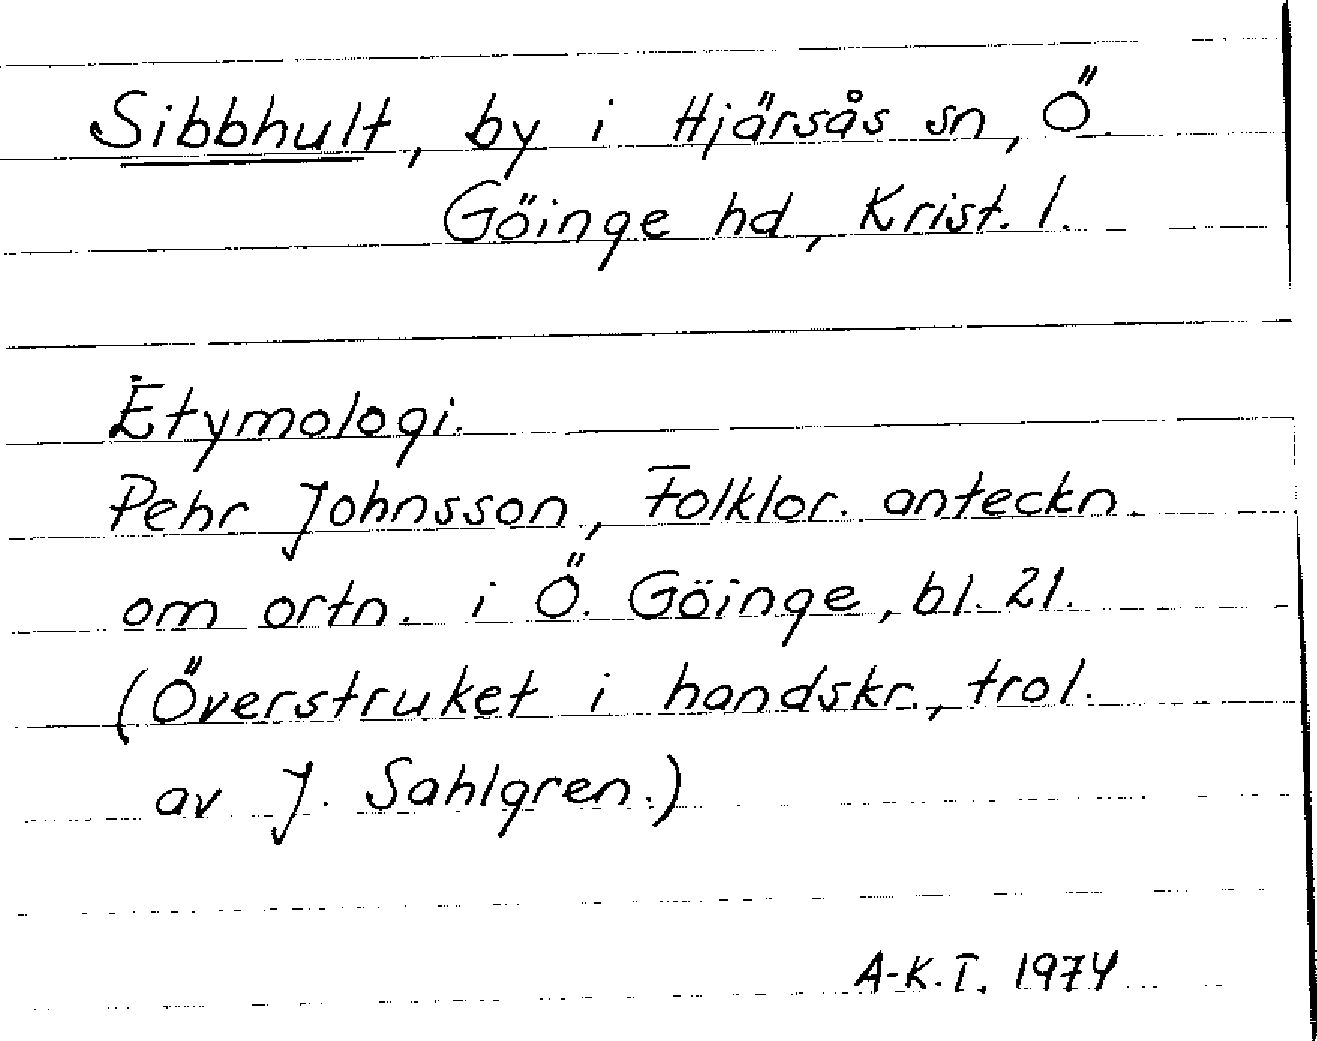 Sibbhult, by i Hjärsås sn, Ö.
Göinge hd, Krist. l.
Etymologi.
Pehr Johnsson, Folklor. anteckn.
om ortn. i Ö. Göinge, bl. 21.
(Överstruket i handskr., trol.
av J. Sahlgren.)
A-K.T. 1974